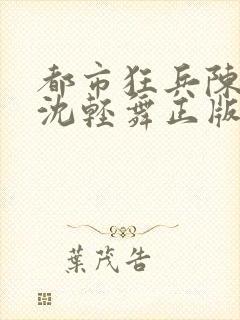 都市狂兵陳
沈輕舞正版
葉茂告